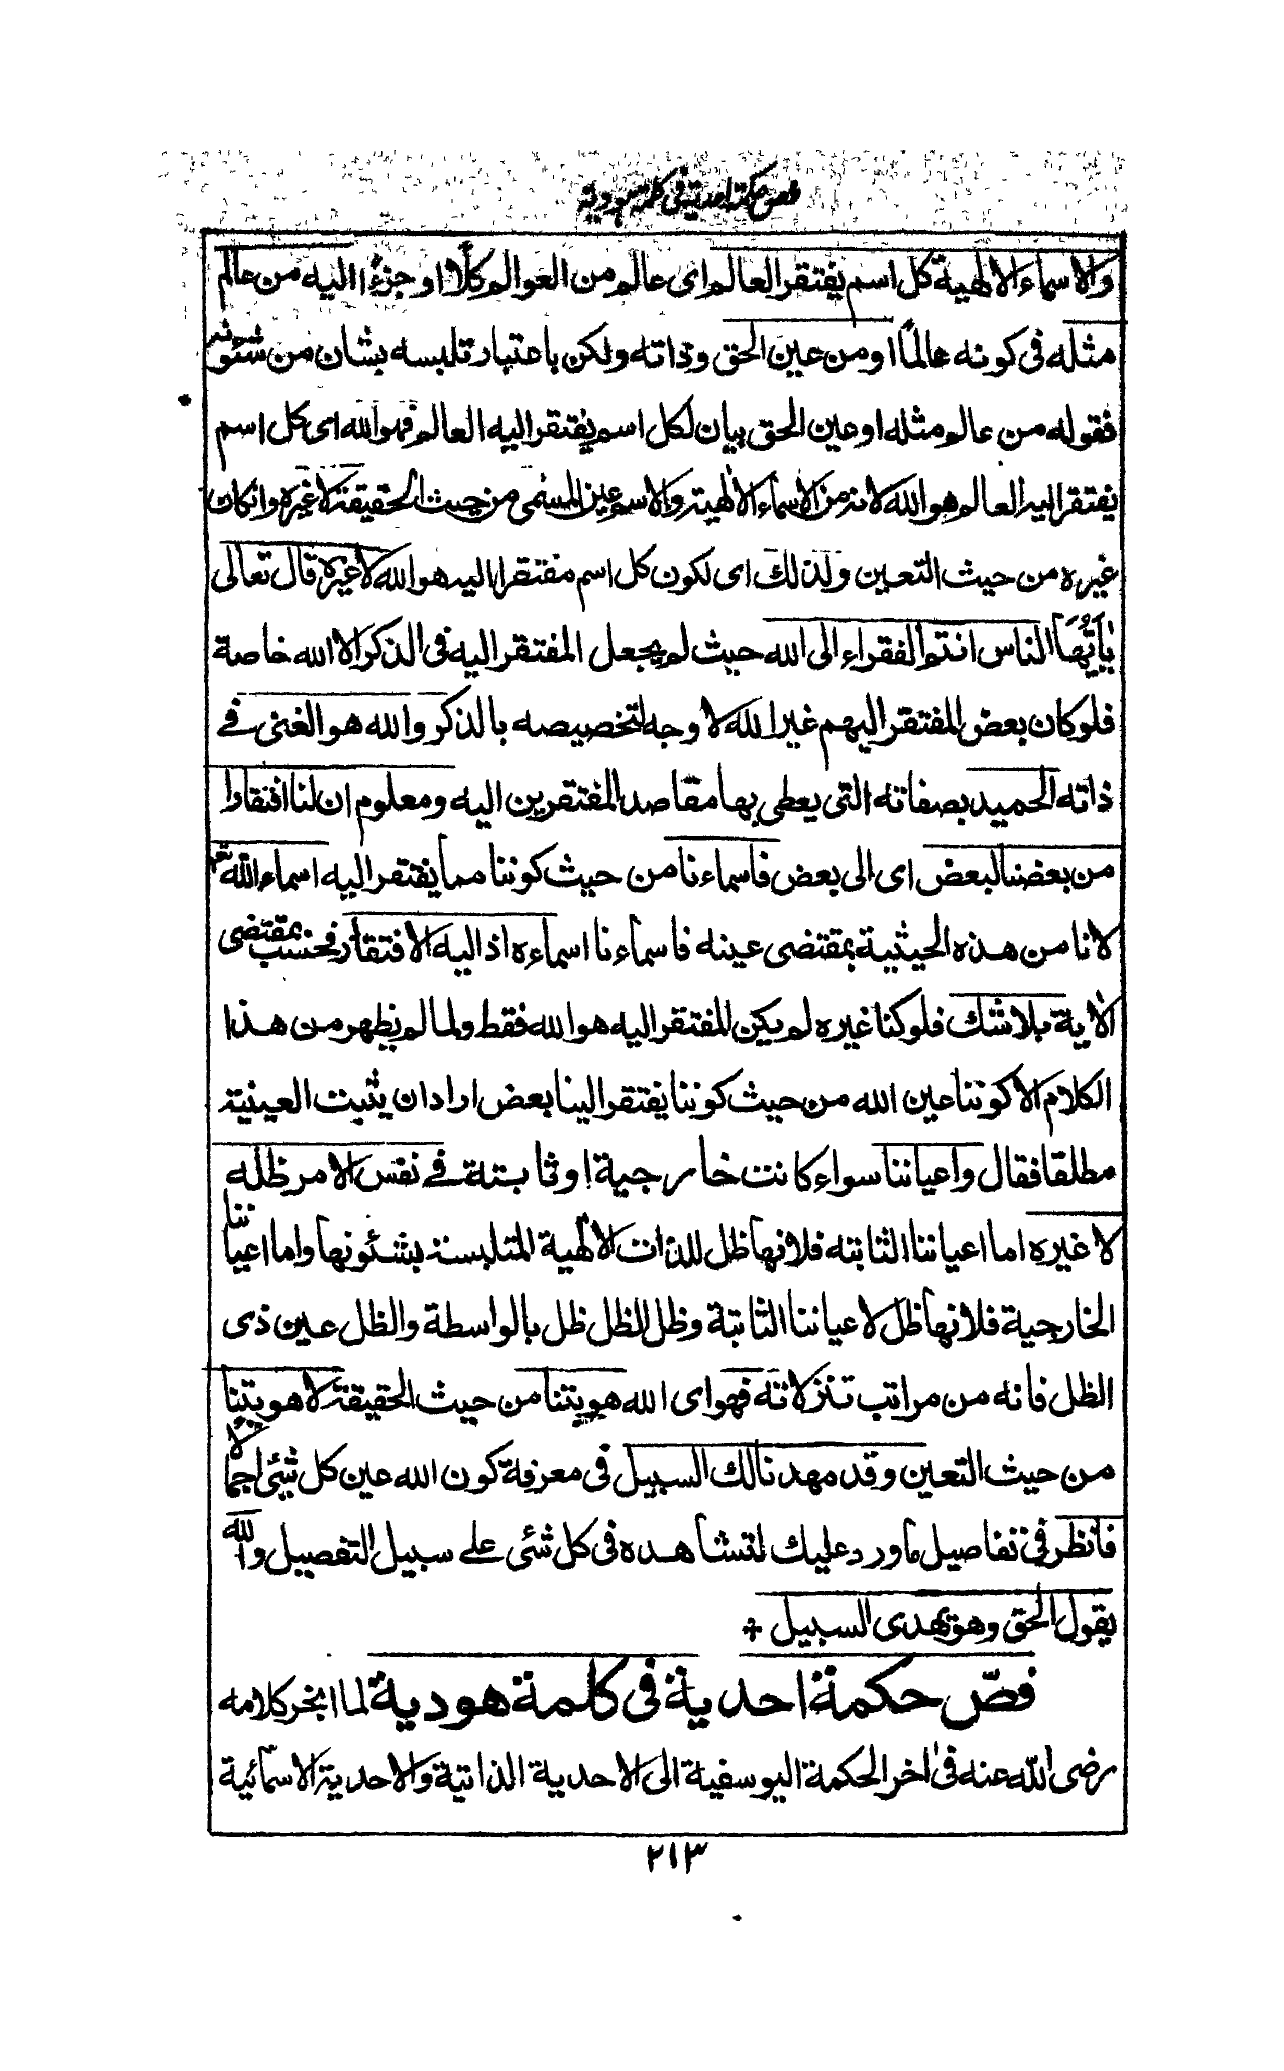 فص حكمة احدية فى كلمة هودية
والاسماء الالهية كل اسم يفتقر العالم اى عالم من العوالم كلًا او جزءًا اليه من عالم
مثله فى كونه عالمًا او من عين الحق وذاته ولكن باعتبار تلبسه بشان من شئونه
فقوله من عالم مثله او عين الحق بيان لكل اسم يفتقر اليه العالم فهو الله اى كل اسم
يفتقر اليه العالم هو الله لانه من الاسماء الالهية والاسم عين المسمى من حيث الحقيقة لا غيره وان كان
غيره من حيث التعين ولذلك اى لكون كل اسم مفتقرا اليه هو الله لا غيره قال تعالى
يٰأَيُّهَا الناس انتم الفقراء الى الله حيث لم يجعل المفتقر اليه فى الذكر الا الله خاصة
فلو كان بعض المفتقر اليهم غير الله لا وجه لتخصيصه بالذكر والله هو الغنى فے
ذاته الحميد بصفاته التى يعطى بها مقاصد المفتقرين اليه ومعلوم ان لنا افتقارا
من بعضنا لبعض اى الى بعض فاسماءنا من حيث كوننا مما يفتقر اليه اسماء الله تعالى
لانا من هذه الحيثية بمقتضى عينه فاسماءنا اسماءه اذ اليه الافتقار فحسب بمقتضى
الاٰية بلا شك فلو كنا غيره لم يكن المفتقر اليه هو الله فقط ولما لم يظهر من هذا
الكلام الا كوننا عين الله من حيث كوننا يفتقر الينا بعض اراد ان يثبت العينية
مطلقا فقال واعياننا سواء كانت خارجية او ثابتة فے نفس الامر ظله
لا غيره اما اعياننا الثابته فلانها ظل للذات الالهية المتلبسة بشئونها واما اعياننا
الخارجية فلانها ظل لاعياننا الثابتة وظل الظل ظل بالواسطة والظل عين ذى
الظل فانه من مراتب تنزلاته فهو اى الله هويتنا من حيث الحقيقة لا هويتنا
من حيث التعين وقد مهدنا لك السبيل فى معرفة كون الله عين كل شئى اجمالا
فانظر فى تفاصيل ما ورد عليك لتشاهده فى كل شئى علے سبيل التفصيل والله
يقول الحق وهو يهدى السبيل +
فصّ حكمة احدية فى كلمة هودية لما انجر كلامه
رضى الله عنه فى اٰخر الحكمة اليوسفية الى الاحدية الذاتية والاحدية الاسمائية
٢١٣